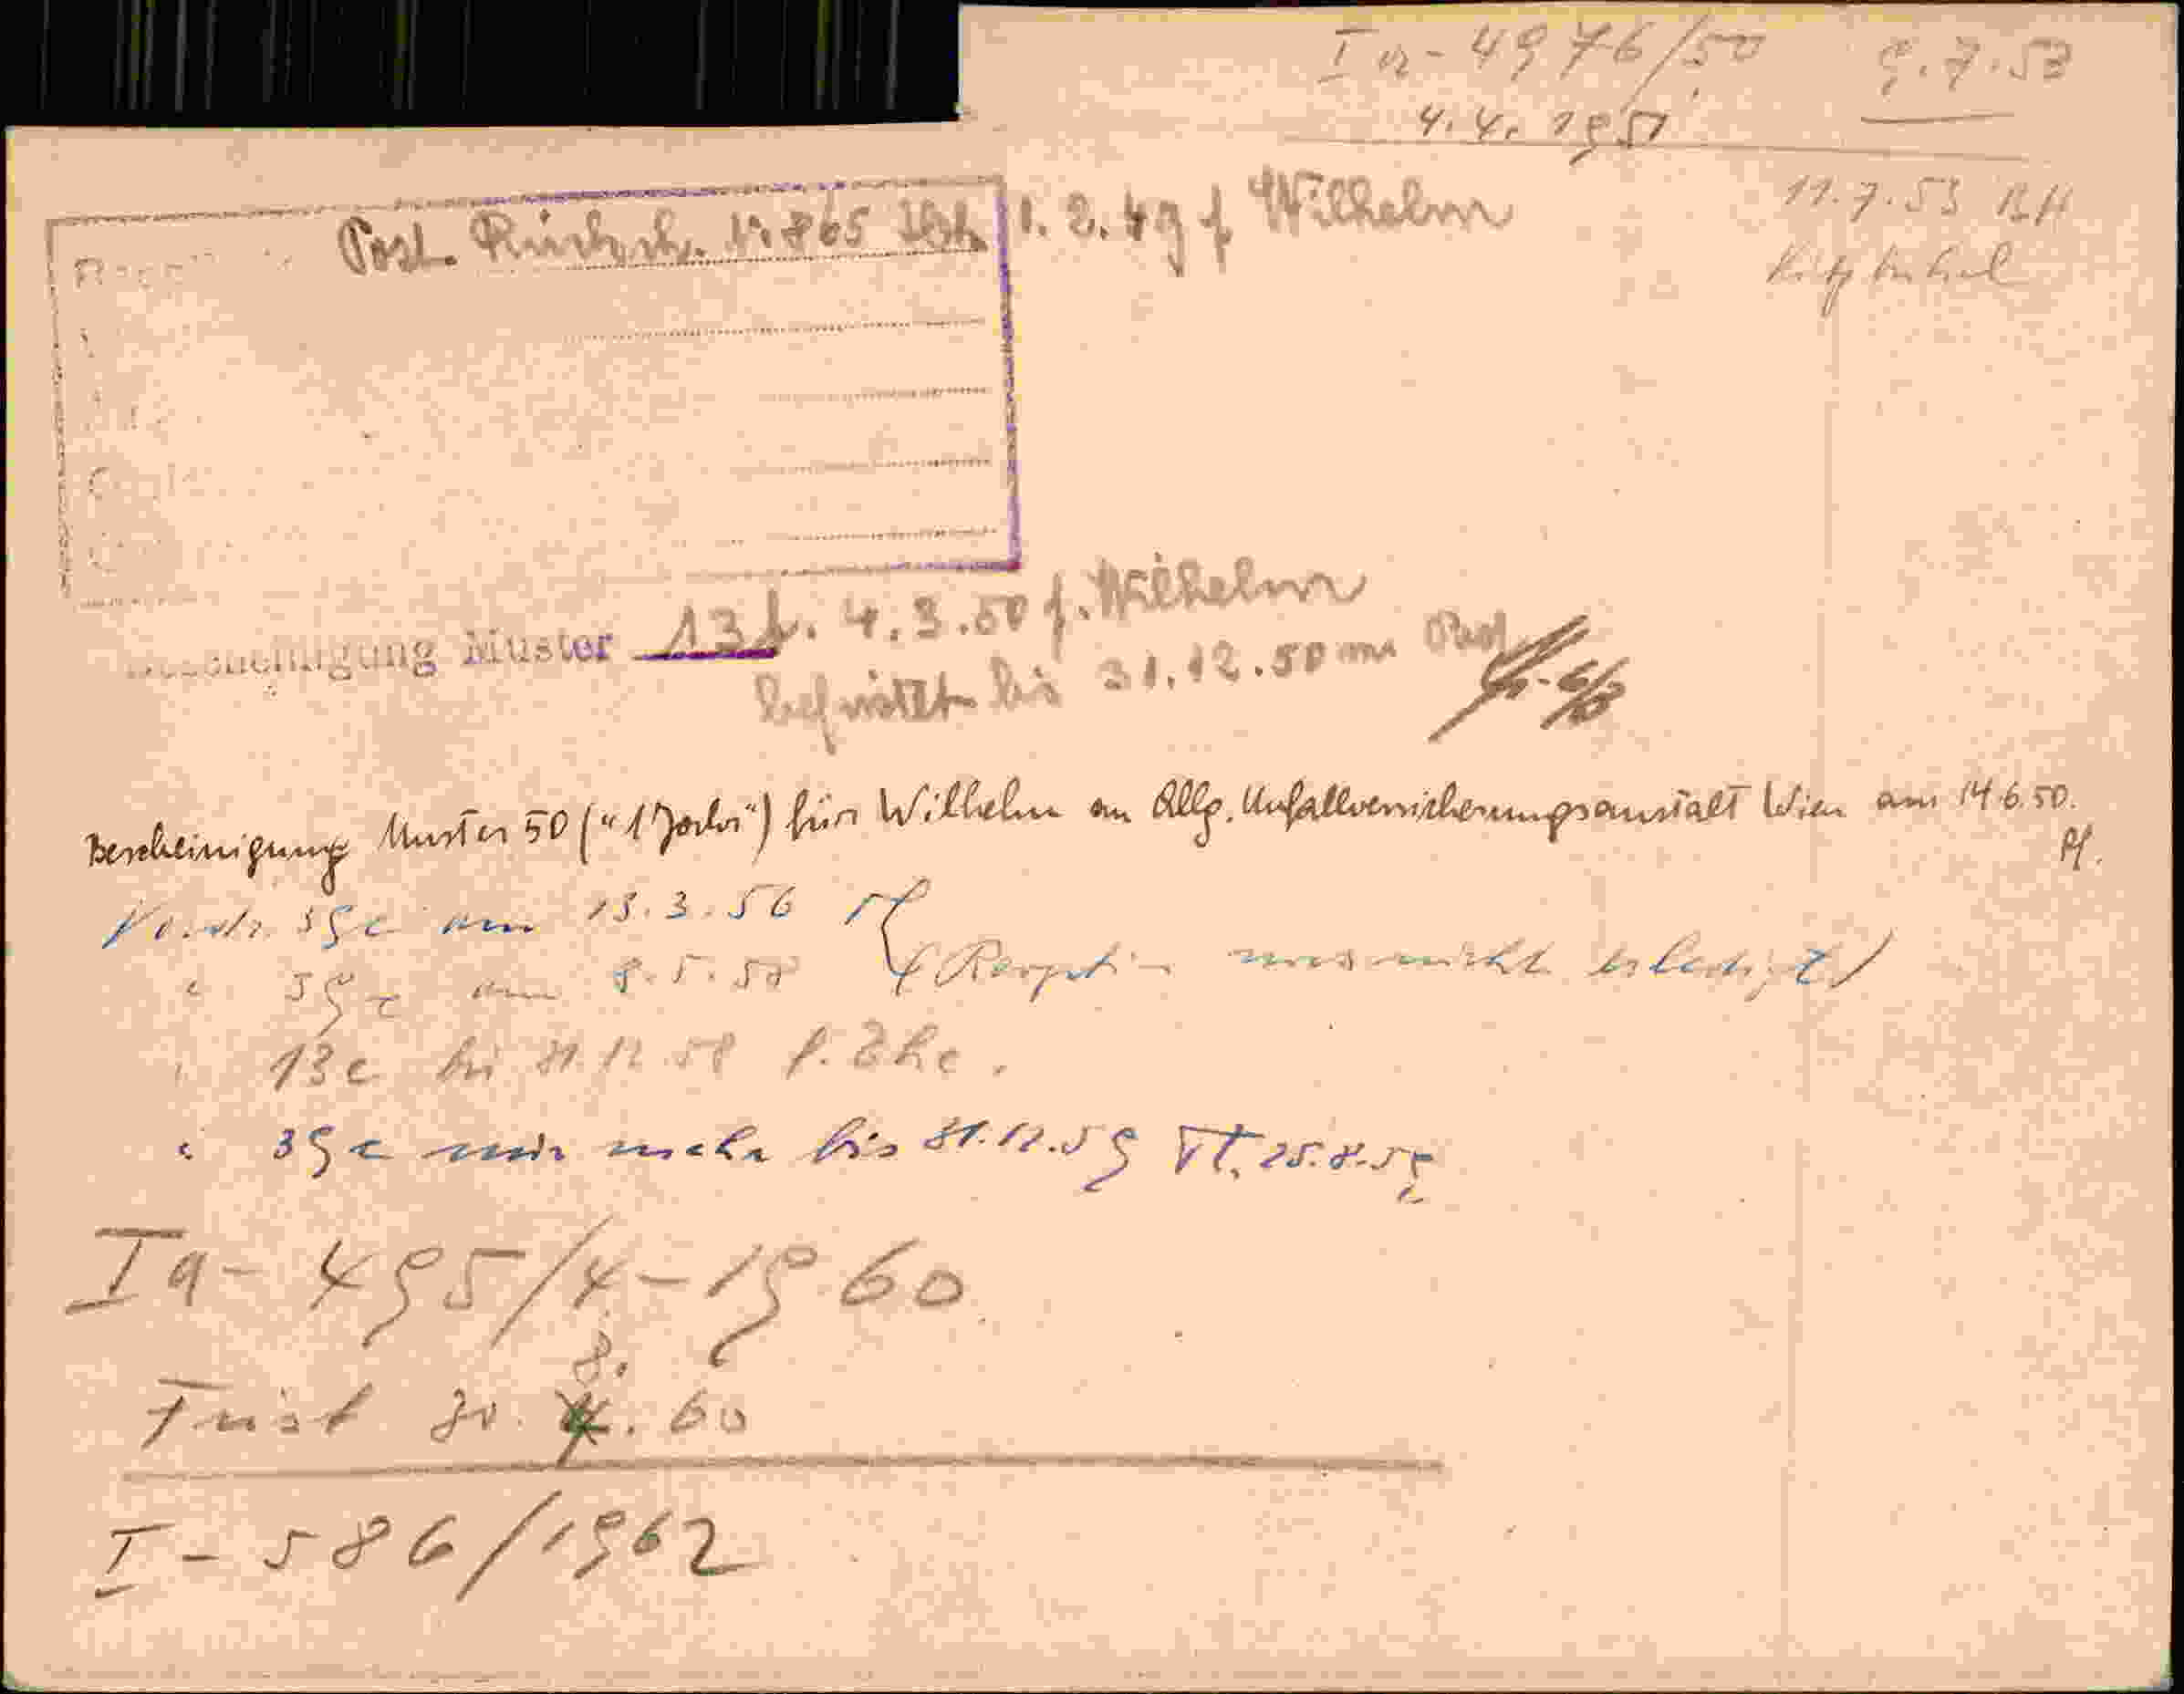 Ia - 4976/50 9.7.53
4.4.1951
11.7.53 BH
Kitzbühel
Post. Rücksch. 1.2.49 f. Wilhelm
Bescheinigung Muster 13 b. 4.3.50 f. Wilhelm
befristet bis 31.12.50
Bescheinigung Muster 50 ("1 Jahr") für Wilhelm an Allg. Unfallversicherungsanstalt Wien am 14.6.50.
Pf.
Vordr. 39c am 13.3.56
" 39c am 8.5.58 (Reoption noch nicht erledigt)
" 13c bis 31.12.58 f. Ehe.
" 39c nur mehr bis 31.12.59 25.8.59
Ia - 495/4-1960
8.
Frist 30. 4. 60
I - 586/1962